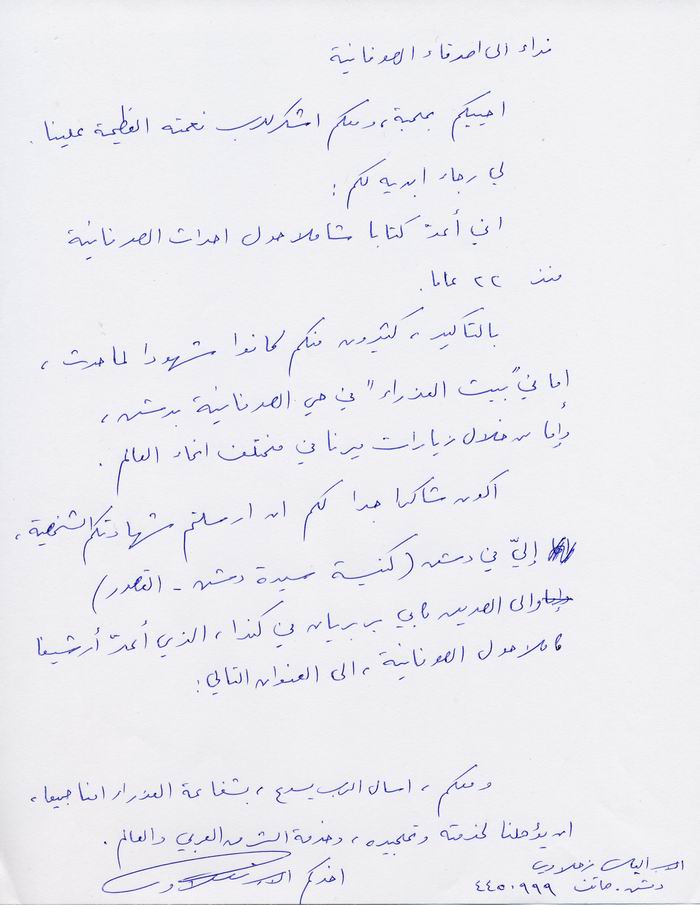 نداء الى اصدقاء الصوفانية
احييكم بمحبة، ومعكم اشكر للرب نعمته العظيمة علينا.
لي رجاء ابديه لكم :
اني أعدّ كتابا شاملا حول احداث الصوفانية
منذ ٢٢ عاما.
بالتأكيد، كثيرون منكم كانوا شهودا لما حدث،
اما في "بيت العذراء" في حي الصوفانية بدمشق،
وإما من خلال زيارات ميرنا في مختلف انحاء العالم.
اكون شاكرا جدا لكم ان ارسلتم شهادتكم الشخصية،
إليّ في دمشق (كنيسة سيدة دمشق - القصور)
والى الصديق غابي بربريان في كندا، الذي أعدّ أرشيفا
كاملا حول الصوفانية، الى العنوان التالي:
ومعكم، اسأل الرب يسوع، بشفاعة العذراء امنا جميعا،
ان يؤهلنا لخدمته وتمجيده، وخدمة الشرق العربي والعالم.
اخوكم الاب الياس زحلاوي
الاب الياس زحلاوي
دمشق. هاتف ٤٤٥٠٩٩٩